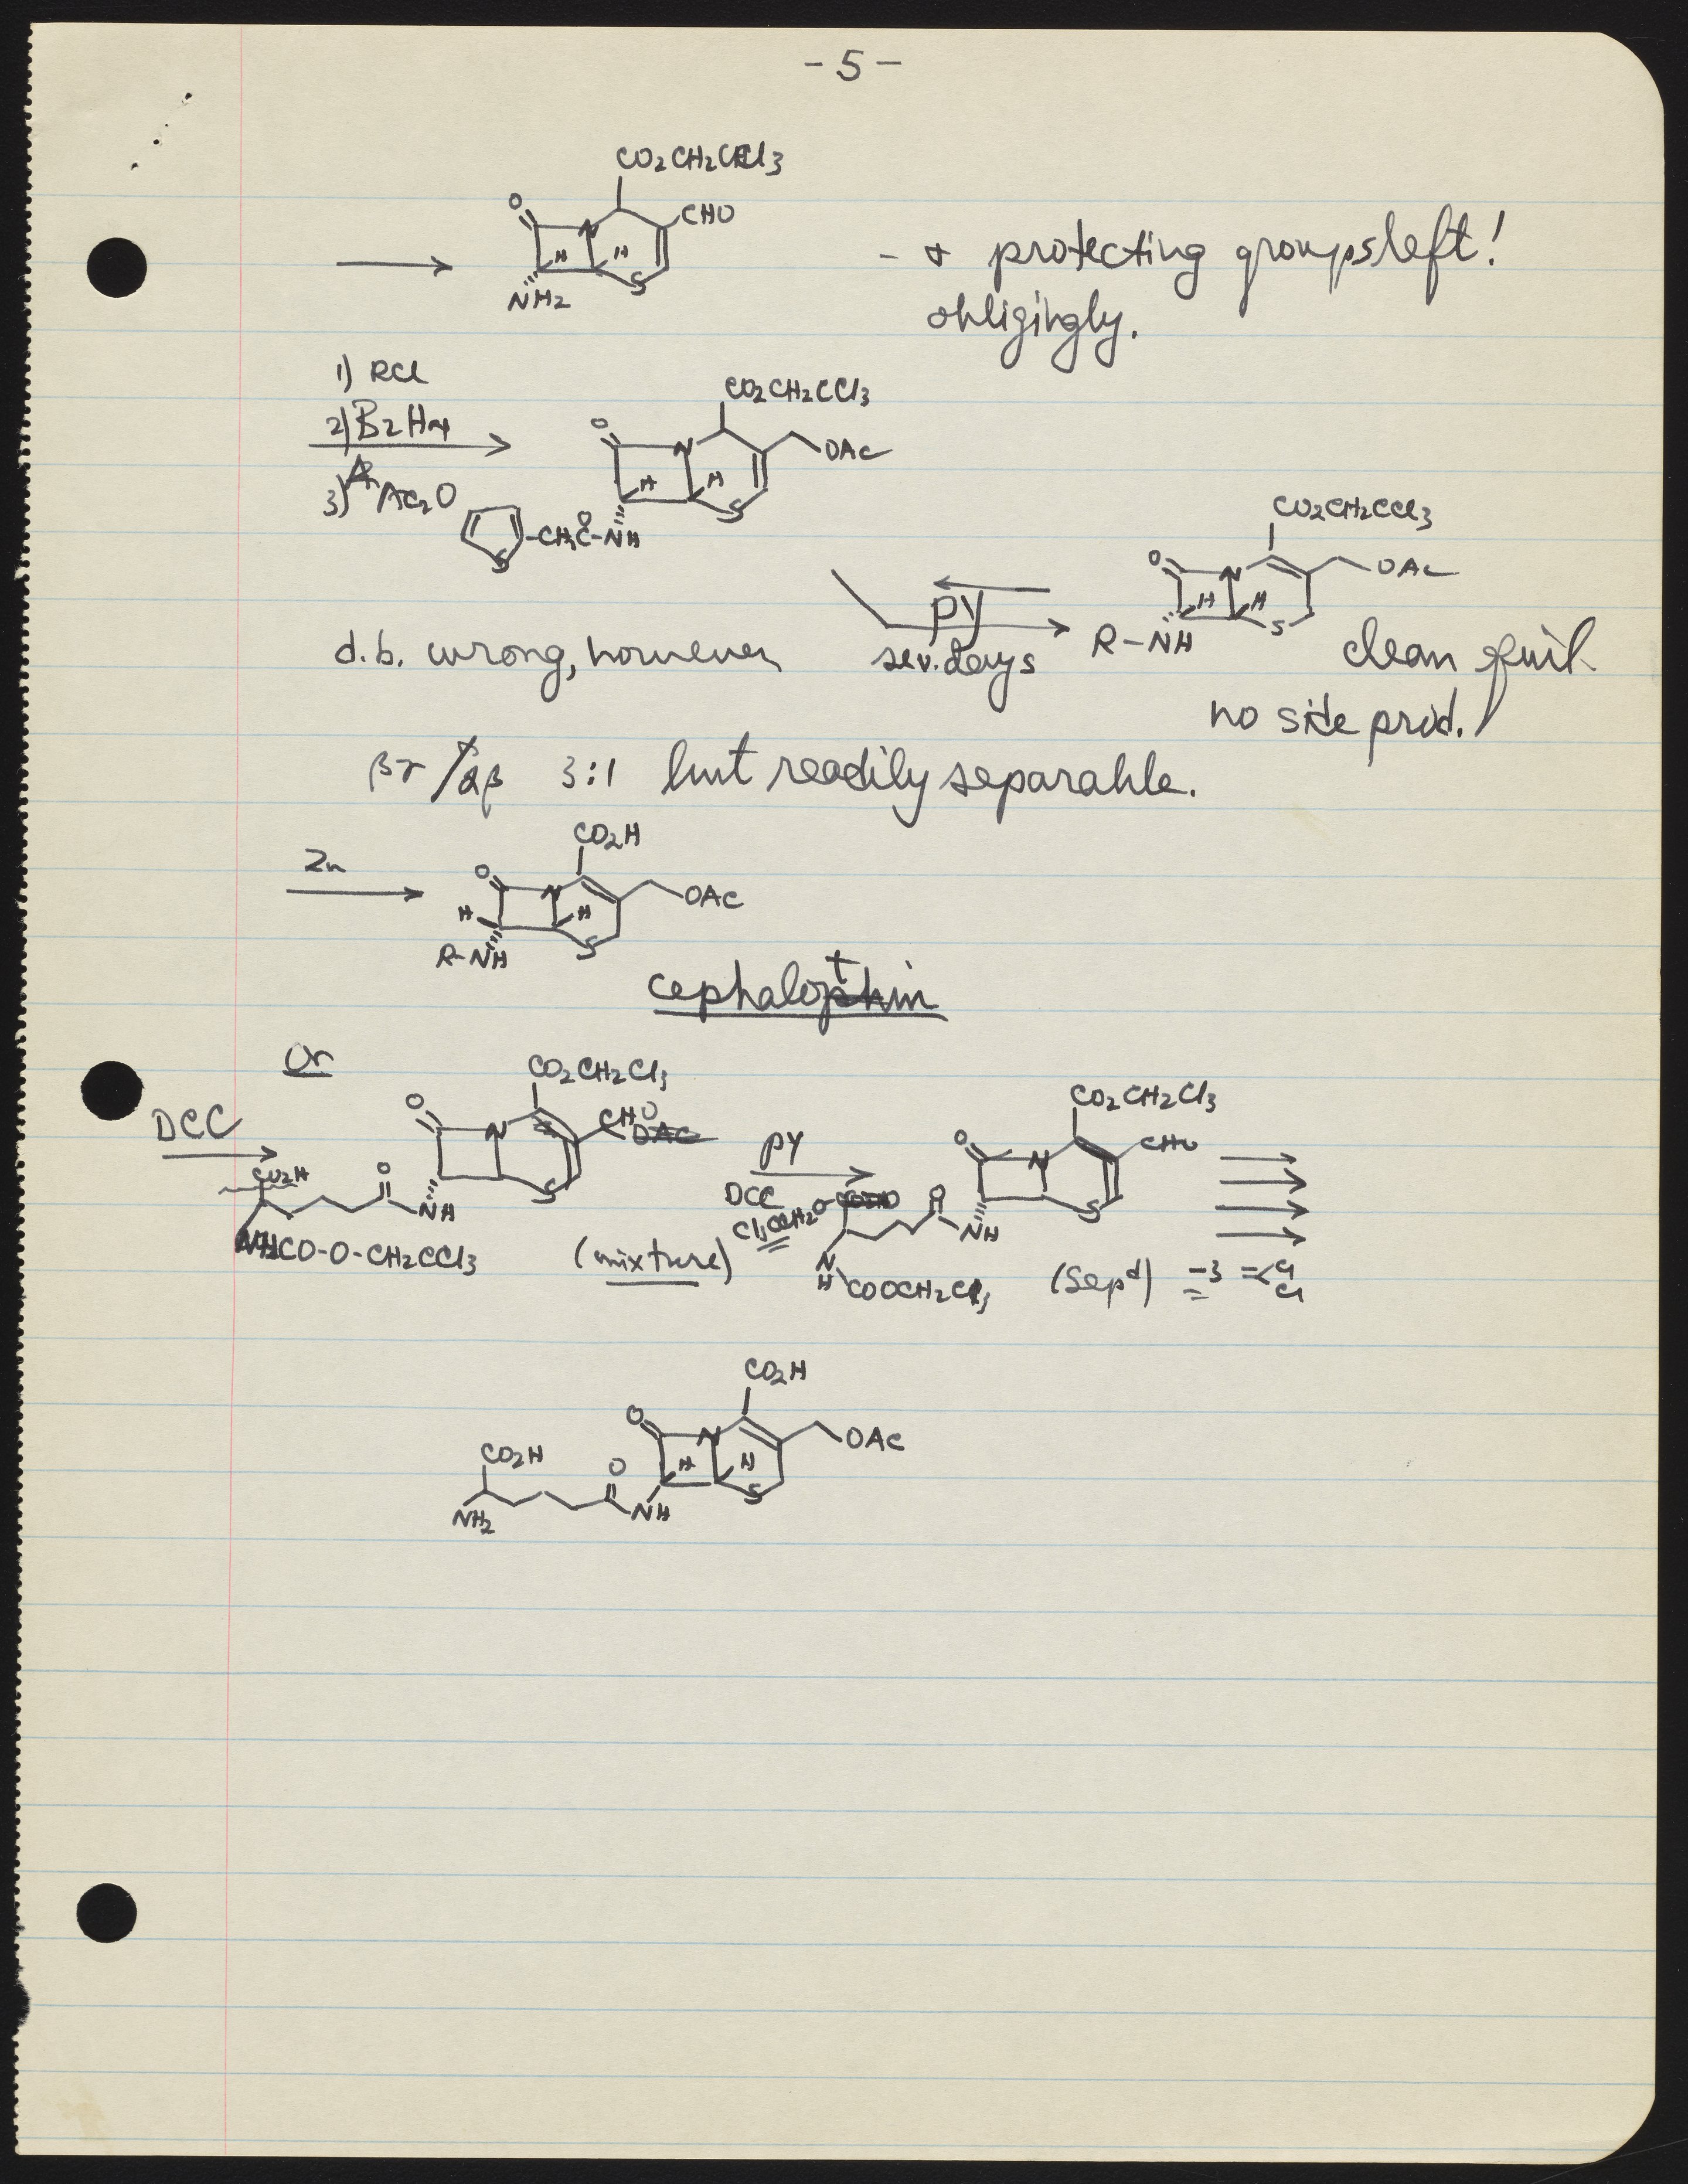 - 5 -
CO2CH2CCl3
O
N
CHO
H
H
S
NH2
- & protecting groups left!
obligingly.
1) RCl
2) B2H4
3) Ac2O
CO2CH2CCl3
O
N
OAc
H
H
S
S
-CH2C-NH
O
CO2CH2CCl3
O
N
OAc
H
H
S
R-NH
py
sev. days
d.b. wrong, however
clean equil
no side prod.
βγ/αβ 3:1 but readily separable.
Zn
CO2H
O
N
OAc
H
H
S
R-NH
cephalotin
Or
DCC
CO2CH2Cl3
O
N
CHO
OAc
S
CO2H
O
NH
NHCO-O-CH2CCl3
(mixture)
py
DCC
Cl3CCH2O-
CO2CH2Cl3
O
N
CHO
S
O
NH
N
H
COOCH2Cl3
(Sepd)
-3 =< Cl Cl
CO2H
O
N
OAc
H
H
S
CO2H
O
NH
NH2